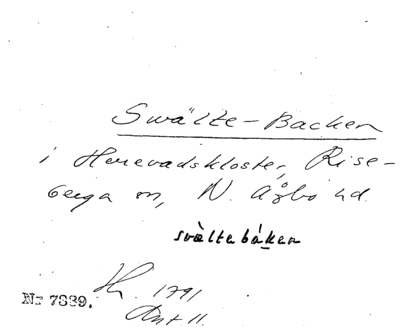 Swälte-Backen
i Herrevadskloster, Rise-
berga sn, N. Åsbo hd.
svàltebáken
Nr 7889.
1791
Ant 11.